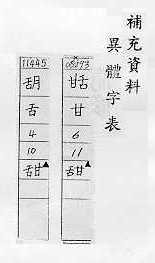 補充資料
異體字表
甘
6
11
甜▲
11445
舌
4
10
甜▲